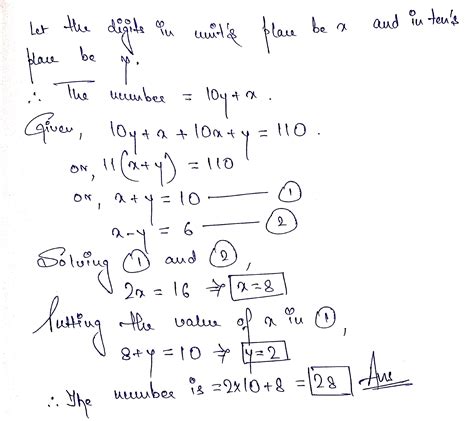 Let the digits in unit's place be x and in ten's
place be y.
∴ The number = 10y + x .
Given, 10y + x + 10x + y = 110 .
or, 11(x+y) = 110
or, x + y = 10 —— ①
x - y = 6 —— ②
Solving ① and ②,
2x = 16 ⇒ x = 8
Putting the value of x in ①,
8 + y = 10 ⇒ y = 2
∴ The number is = 2x10 + 8 = 28 Ans